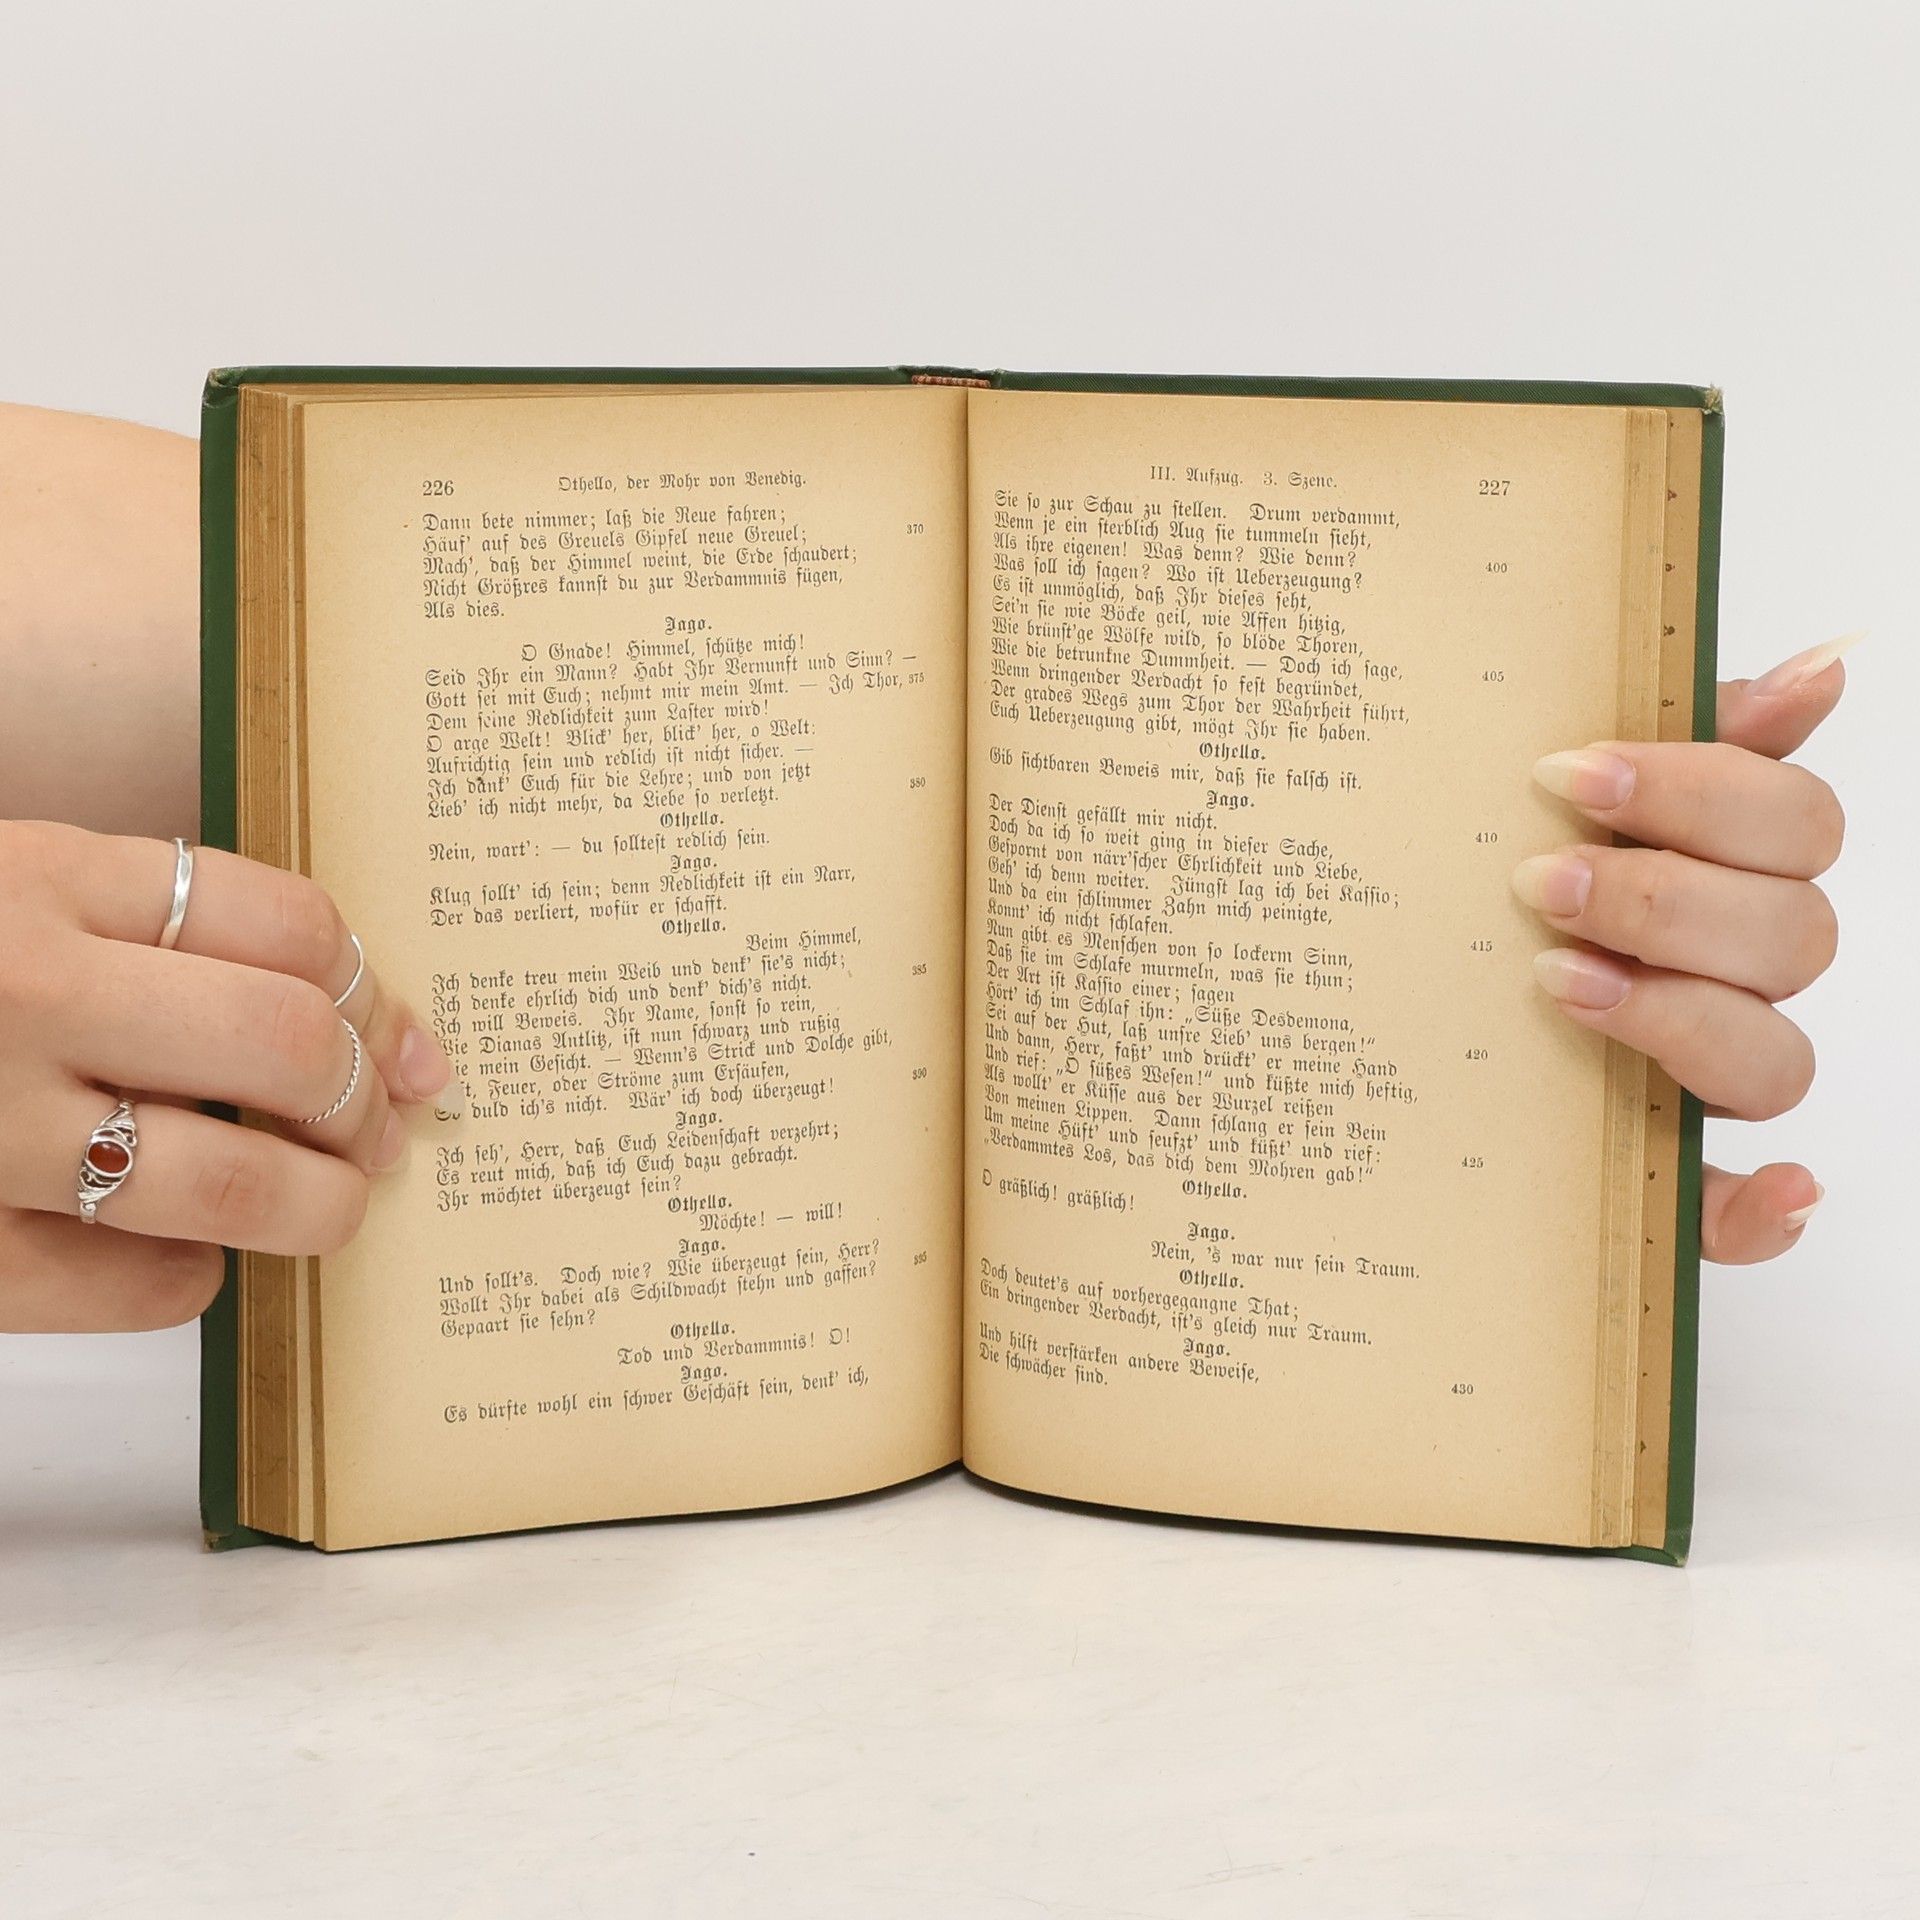 226
Othello, der Mohr von Venedig.
Dann bete nimmer; laß die Reue fahren;
Häuf' auf des Greuels Gipfel neue Greuel; 370
Mach', daß der Himmel weint, die Erde schaudert;
Nicht Größres kannst du zur Verdammnis fügen,
Als dies.
Jago.
O Gnade! Himmel, schütze mich!
Seid Ihr ein Mann? Habt Ihr Vernunft und Sinn? —
Gott sei mit Euch; nehmt mir mein Amt. — Ich Thor, 375
Dem seine Redlichkeit zum Laster wird!
O arge Welt! Blick' her, blick' her, o Welt:
Aufrichtig sein und redlich ist nicht sicher. —
Ich dank' Euch für die Lehre; und von jetzt
Lieb' ich nicht mehr, da Liebe so verletzt. 380
Othello.
Nein, wart': — du solltest redlich sein.
Jago.
Klug sollt' ich sein; denn Redlichkeit ist ein Narr,
Der das verliert, wofür er schafft.
Othello.
Beim Himmel,
Ich denke treu mein Weib und denk' sie's nicht; 385
Ich denke ehrlich dich und denk' dich's nicht.
Ich will Beweis. Ihr Name, sonst so rein,
Wie Dianas Antlitz, ist nun schwarz und rußig
Wie mein Gesicht. — Wenn's Strick und Dolche gibt,
Feuer, oder Ströme zum Ersäufen, 390
So duld ich's nicht. Wär' ich doch überzeugt!
Jago.
Ich seh', Herr, daß Euch Leidenschaft verzehrt;
Es reut mich, daß ich Euch dazu gebracht.
Ihr möchtet überzeugt sein?
Othello.
Möchte! — will!
Jago.
Und sollt's. Doch wie? Wie überzeugt sein, Herr? 395
Wollt Ihr dabei als Schildwacht stehn und gaffen?
Gepaart sie sehn?
Othello.
Tod und Verdammnis! O!
Jago.
Es dürfte wohl ein schwer Geschäft sein, denk' ich,
III. Aufzug. 3. Szene.
227
Sie so zur Schau zu stellen. Drum verdammt,
Wenn je ein sterblich Aug sie tummeln sieht,
Als ihre eigenen! Was denn? Wie denn? 400
Was soll ich sagen? Wo ist Ueberzeugung?
Es ist unmöglich, daß Ihr dieses seht,
Sei'n sie wie Böcke geil, wie Affen hitzig,
Wie brünst'ge Wölfe wild, so blöde Thoren,
Wie die betrunkne Dummheit. — Doch ich sage, 405
Wenn dringender Verdacht so fest begründet,
Der grades Wegs zum Thor der Wahrheit führt,
Euch Ueberzeugung gibt, mögt Ihr sie haben.
Othello.
Gib sichtbaren Beweis mir, daß sie falsch ist.
Jago.
Der Dienst gefällt mir nicht. 410
Doch da ich so weit ging in dieser Sache,
Gespornt von närr'scher Ehrlichkeit und Liebe,
Geh' ich denn weiter. Jüngst lag ich bei Kassio;
Und da ein schlimmer Zahn mich peinigte,
Konnt' ich nicht schlafen. 415
Nun gibt es Menschen von so lockerm Sinn,
Daß sie im Schlafe murmeln, was sie thun;
Der Art ist Kassio einer; sagen
Hört' ich im Schlaf ihn: „Süße Desdemona,
Sei auf der Hut, laß unsre Lieb' uns bergen!“ 420
Und dann, Herr, faßt' und drückt' er meine Hand
Und rief: „O süßes Wesen!“ und küßte mich heftig,
Als wollt' er Küsse aus der Wurzel reißen
Von meinen Lippen. Dann schlang er sein Bein
Um meine Hüft' und seufzt' und küßt' und rief: 425
„Verdammtes Los, das dich dem Mohren gab!“
Othello.
O gräßlich! gräßlich!
Jago.
Nein, 's war nur sein Traum.
Othello.
Doch deutet's auf vorhergegangne That;
Ein dringender Verdacht, ist's gleich nur Traum.
Jago.
Und hilft verstärken andere Beweise, 430
Die schwächer sind.